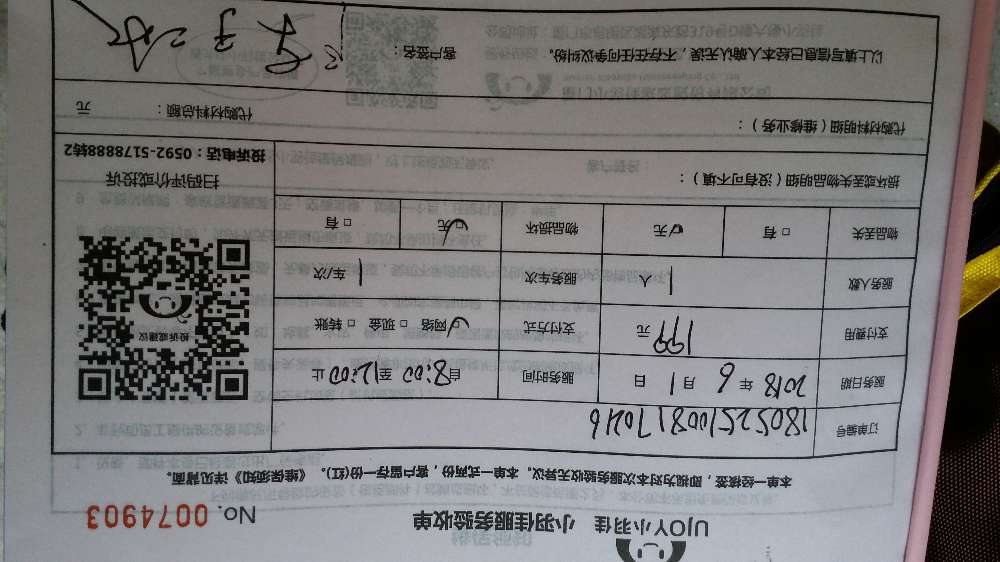 UJOY小羽佳 小羽佳服务验收单 No. 0074903
本单一经接签，即视为对本次服务验收无异议。本单一式两份，客户留存一份(红)。《维保须知》详见背面。
订单编号 18052510081 70246
服务日期 2018 年 6 月 1 日 服务时间 自8:00 至12:00止
支付费用 199 元 支付方式 ☑网络 □现金 □转账
服务人数 1 人 服务车次 1 车/次
物品丢失 □有 ☑无 物品损坏 ☑无 □有
投诉或建议
扫码评价或投诉
投诉电话：0592-5178888转2
损坏或丢失物品明细（没有可不填）：
代购材料明细（维修业务）： 代购材料总额： 元
以上填写信息已经本人确认无误，不存在任何争议纠纷。 客户签名：